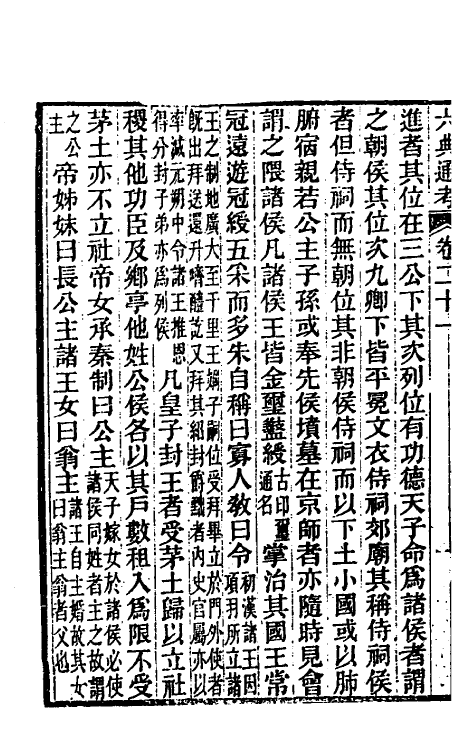 六典通考 卷二十一
進者其位在三公下其次列位有功德天子命爲諸侯者謂
之朝侯其位次九卿下皆平冕文衣侍祠郊廟其稱侍祠侯
者但侍祠而無朝位其非朝侯侍祠而以下土小國或以肺
腑宿親若公主子孫或奉先侯墳墓在京師者亦隨時見會
謂之隈諸侯凡諸侯王皆金璽盭綬古印璽通名掌治其國王常
冠遠遊冠綬五采而多朱自稱曰寡人教曰令初漢諸王因項羽所立諸
王之制地廣大至千里王嫡子嗣位受拜畢立於門外使者
既出拜送還升嚌醴訖又拜其紹封爵者內史官屬亦以
率減元朔中令諸王推恩得分封子弟亦爲列侯凡皇子封王者受茅土歸以立社
稷其他功臣及鄉亭他姓公侯各以其戶數租入爲限不受
茅土亦不立社帝女承秦制曰公主天子嫁女於諸侯必使諸侯同姓者主之故謂
之公主帝姊妹曰長公主諸王女曰翁主諸王自主婚故其女曰翁主翁者父也